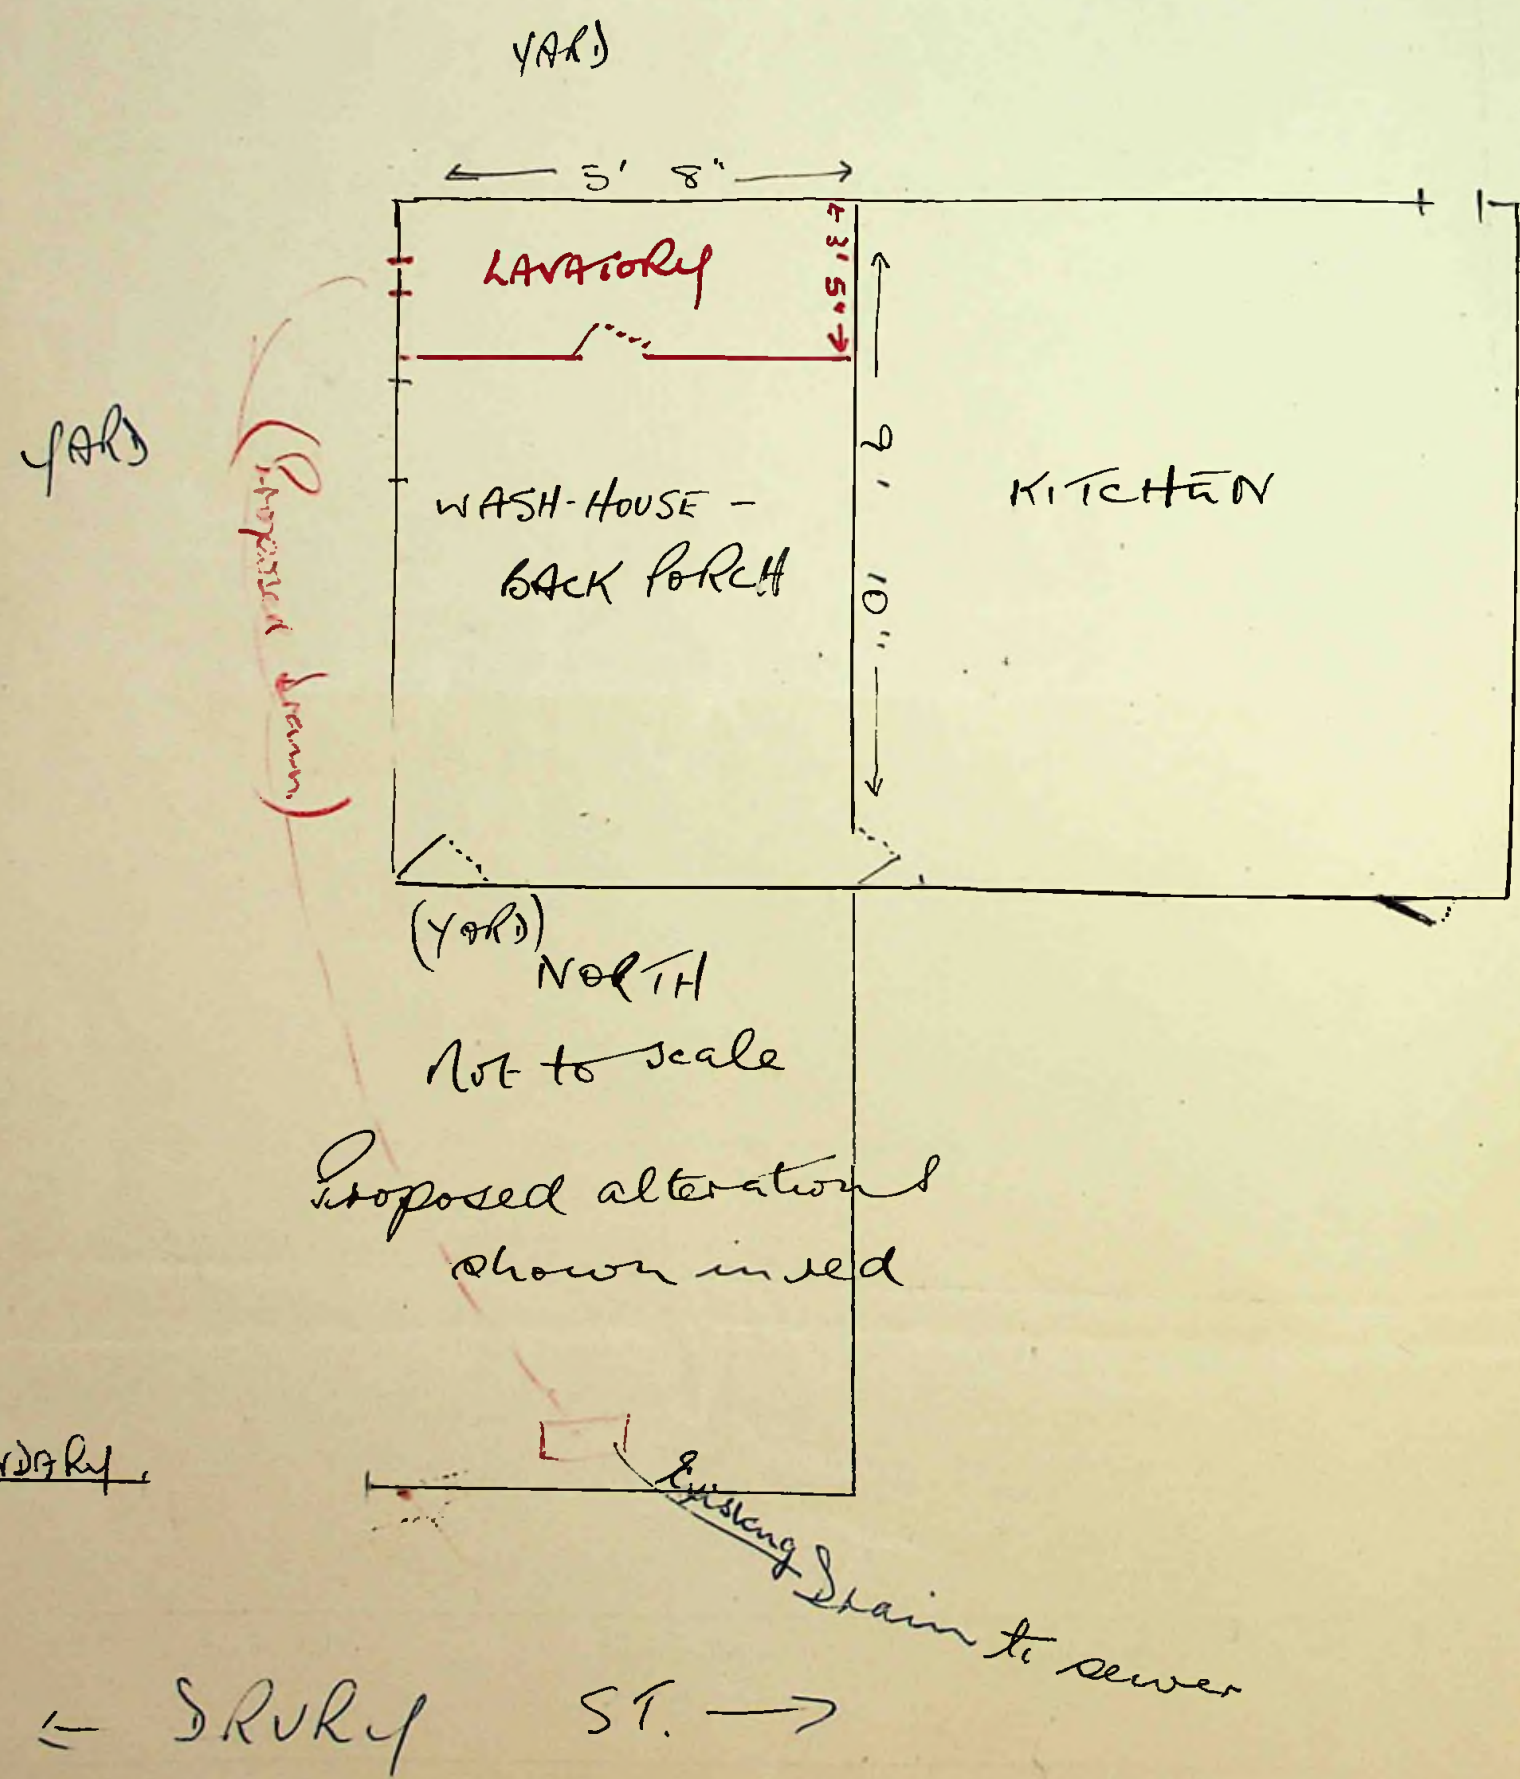 YARD
5' 8"
LAVATORY
3' 5"
YARD
(Proposed drain)
WASH-HOUSE -
BACK PORCH
9' 10"
KITCHEN
(YARD)
NORTH
Not to scale
Proposed alterations
shown in red
NDARY.
Existing Drain to sewer
← DRURY ST. →